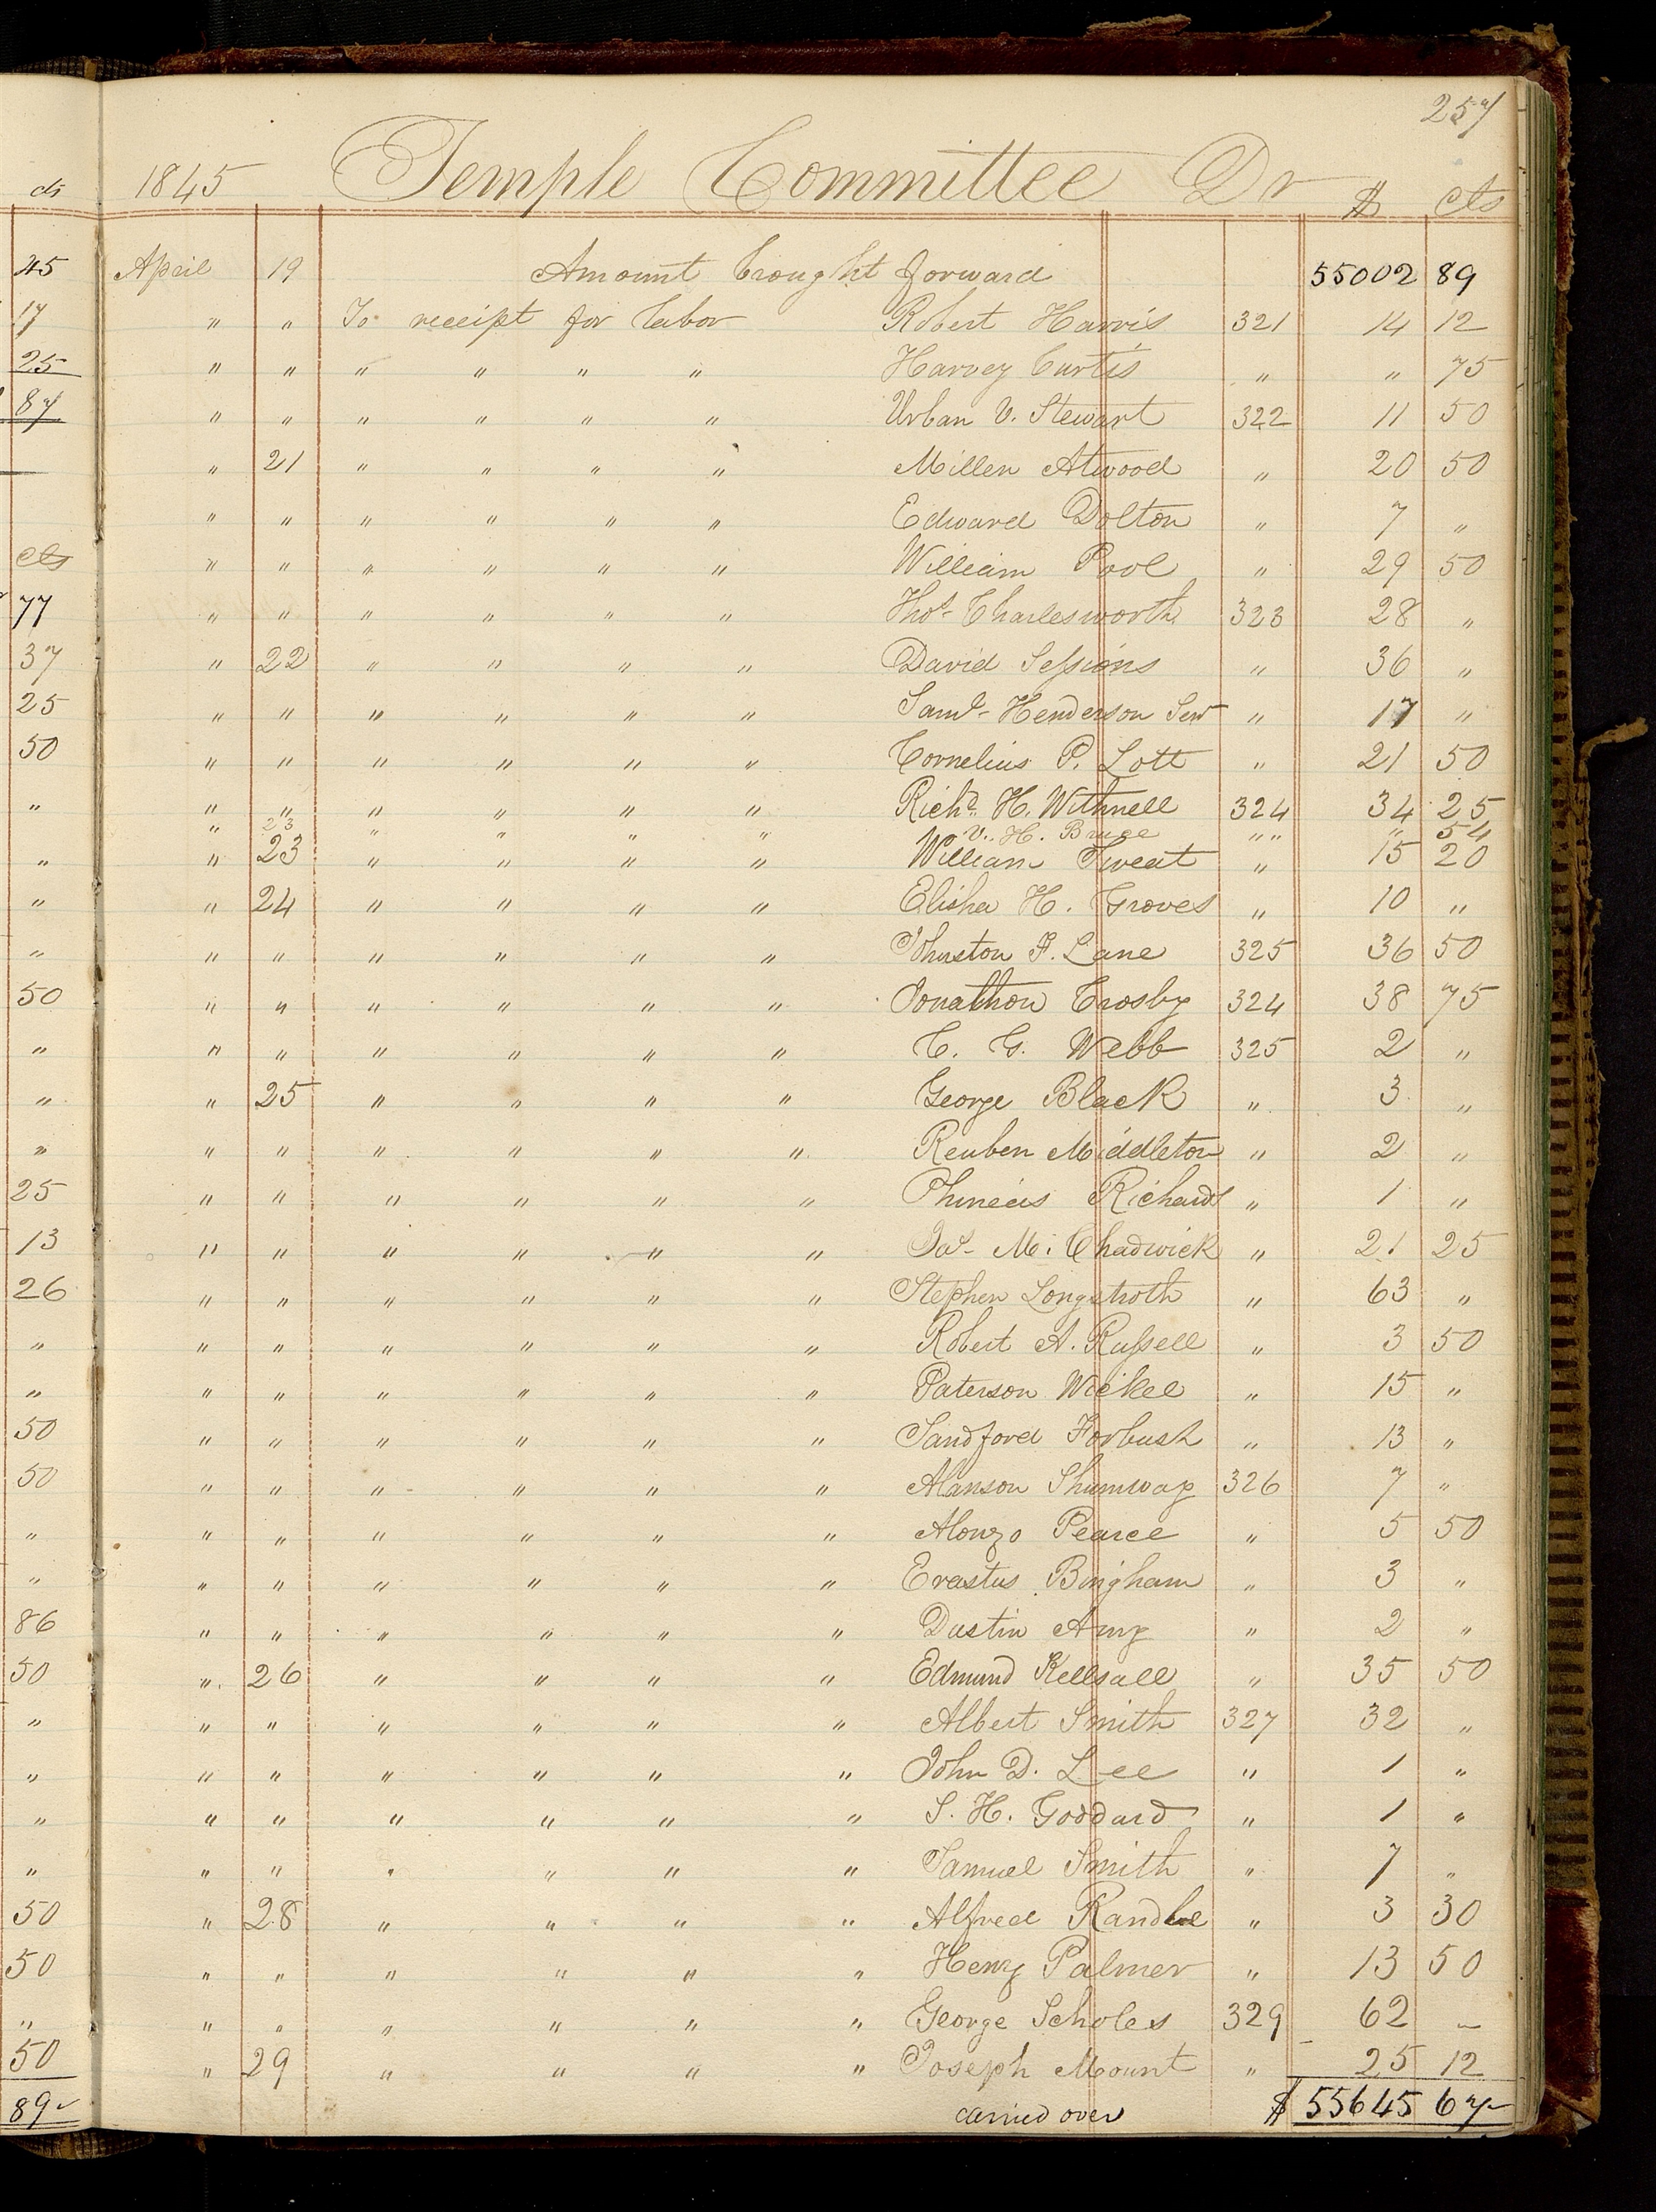 257
1845 Temple Committee Dr $ cts
April 19 Amount brought forward 55002 89
" " To receipt for labor Robert Harris 321 14 12
" " " " " " Harvey Curtis " " 75
" " " " " " Urban V. Stewart 322 11 50
" 21 " " " " Millen Atwood " 20 50
" " " " " " Edward Dolton " 7 "
" " " " " " William Pool " 29 50
" " " " " " Thos. Charlesworth 323 28 "
" 22 " " " " David Sessions " 36 "
" " " " " " Saml. Henderson Senr " 17 "
" " " " " " Cornelius P. Lott " 21 50
" " " " " " Richd. H. Withnell 324 34 25
" 23 " " " " V. H. Bruce " " " 54
" 23 " " " " William Sweat " 15 20
" 24 " " " " Elisha H. Groves " 10 "
" " " " " " Johnston F. Lane 325 36 50
" " " " " " Jonathon Crosby 324 38 75
" " " " " " C. G. Webb 325 2 "
" 25 " " " " George Black " 3 "
" " " " " " Reuben Middleton " 2 "
" " " " " " Phineas Richards " 1 "
" " " " " " Jas. M. Chadwick " 21 25
" " " " " " Stephen Longstroth " 63 "
" " " " " " Robert A. Russell " 3 50
" " " " " " Paterson Wickel " 15 "
" " " " " " Sandford Forbush " 13 "
" " " " " " Alanson Shumway 326 7 "
" " " " " " Alonzo Pearce " 5 50
" " " " " " Erastus Bingham " 3 "
" " " " " " Dustin Amy " 2 "
" 26 " " " " Edmund Kellsall " 35 50
" " " " " " Albert Smith 327 32 "
" " " " " " John D. Lee " 1 "
" " " " " " S. H. Goddard " 1 "
" " " " " " Samuel Smith " 7 "
" 28 " " " " Alfred Randle " 3 30
" " " " " " Henry Palmer " 13 50
" " " " " " George Scholes 329 62 -
" 29 " " " " Joseph Mount " 25 12
carried over $ 55645 67
cts
45
17
25
87
cts
77
37
25
50
"
"
"
"
50
"
"
"
25
13
26
"
"
50
50
"
"
86
50
"
"
"
"
50
50
"
50
89